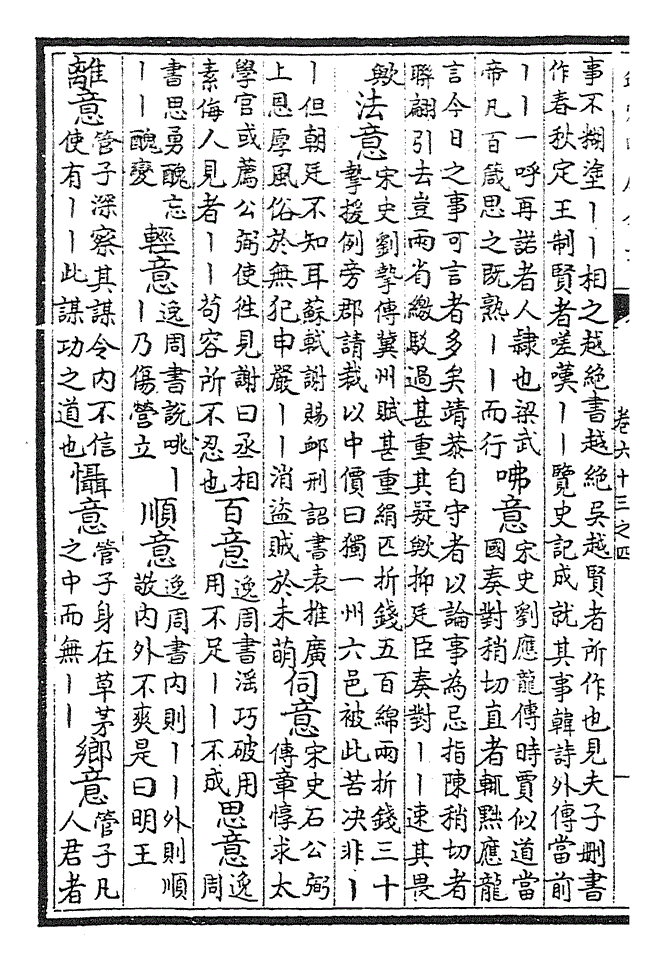 事不糊塗丨丨相之越絕書越絕吳越賢者所作也見夫子刪書
作春秋定王制賢者嗟嘆丨丨覽史記成就其事韓詩外傳當前
丨丨一呼再諾者人隸也梁武
帝凡百箴思之既熟丨丨而行
咈意
宋史劉應龍傳時賈似道當
國奏對稍切直者輒黜應龍
言今日之事可言者多矣靖恭自守者以論事為忌指陳稍切者
聯翩引去豈兩省繳駁過甚重其疑歟抑廷臣奏對丨丨速其畏
歟
法意
宋史劉摯傳冀州賦甚重絹匹折錢五百綿兩折錢三十
摯援例旁郡請裁以中價曰獨一州六邑被此苦决非丨
丨但朝廷不知耳蘇軾謝賜卹刑詔書表推廣
上恩厚風俗於無犯申嚴丨丨消盜賊於未萌
伺意
宋史石公弼
傳章惇求太
學官或薦公弼使徃見謝曰丞相
素侮人見者丨丨苟容所不忍也
百意
逸周書淫巧破用
用不足丨丨不成
思意
逸
周
書思勇醜忘
丨丨醜變
輕意
逸周書説咷丨
丨乃傷營立
順意
逸周書内則丨丨外則順
敬内外不爽是曰明王
離意
管子深察其謀令内不信
使有丨丨此謀功之道也
懾意
管子身在草茅
之中而無丨丨
鄉意
管子凡
人君者
卷六十三之四